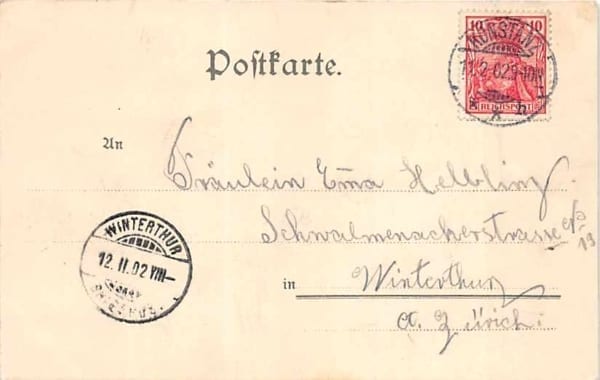 10 10
KONSTANZ
11.2.02 9-10N
REICHSPOST
* b
Postkarte.
An
Fräulein Emma Helbling.
Schwalmenacherstrasse
19
WINTERTHUR
12.II.02 VIII–
in Winterthur
a. Zürich.